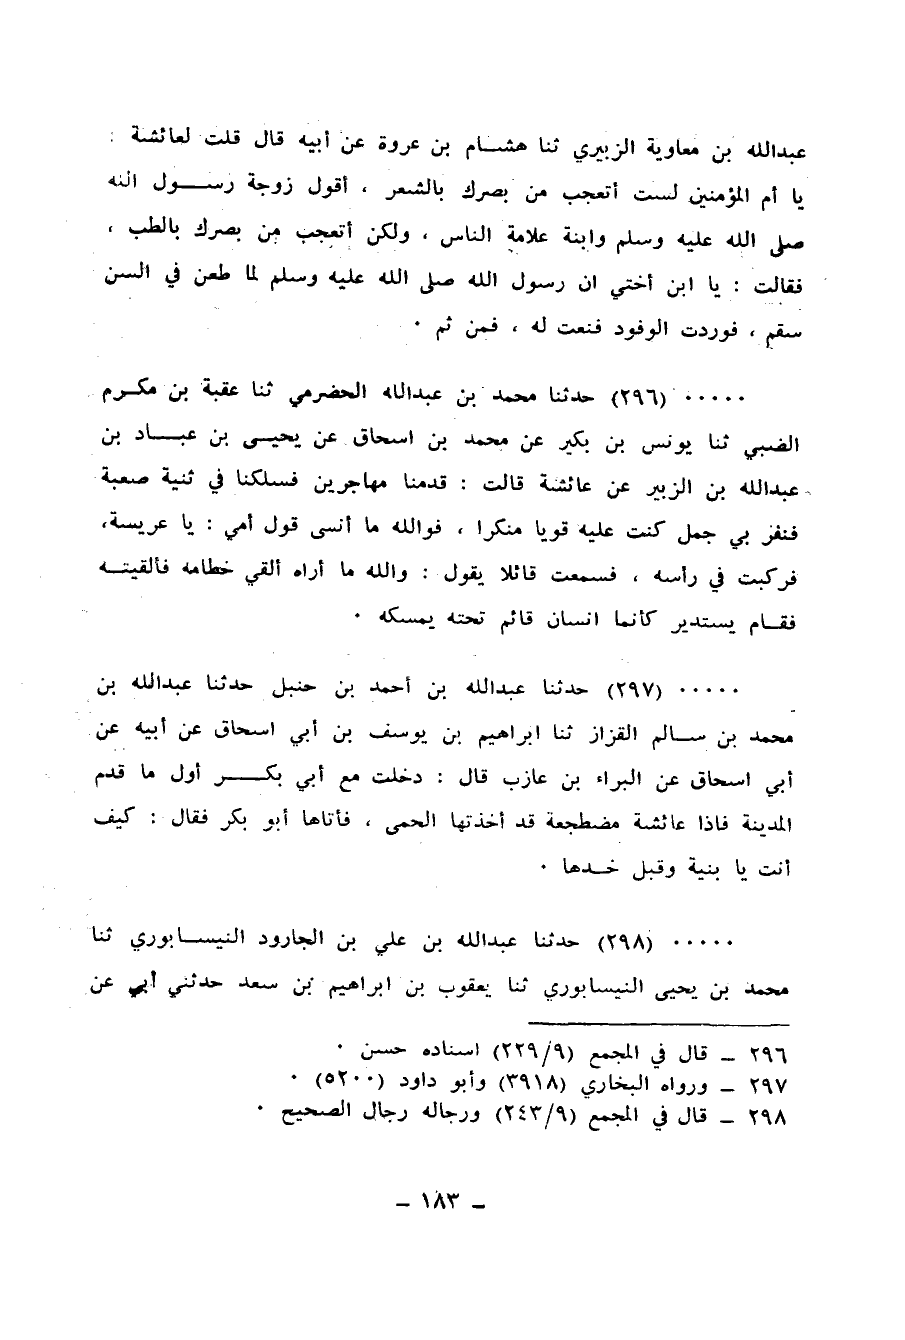 عبدالله بن معاوية الزبيري ثنا هشـــام بن عروة عن أبيه قال قلت لعائشة :
يا أم المؤمنين لست أتعجب من بصرك بالشعر ، أقول زوجة رســـول الله
صلى الله عليه وسلم وابنة علامة الناس ، ولكن أتعجب من بصرك بالطب ،
فقالت : يا ابن أختي ان رسول الله صلى الله عليه وسلم لما طعن في السن
سقم ، فوردت الوفود فنعت له ، فمن ثم ٠
٠٠٠٠٠ (٢٩٦) حدثنا محمد بن عبدالله الحضرمي ثنا عقبة بن مكـرم
الضبي ثنا يونس بن بكير عن محمد بن اسحاق عن يحيـى بن عبـــاد بن
عبدالله بن الزبير عن عائشة قالت : قدمنا مهاجرين فسلكنا في ثنية صعبة
فنفر بي جمل كنت عليه قويا منكرا ، فوالله ما أنسى قول أمي : يا عريسة،
فركبت في رأسه ، فسمعت قائلا يقول : والله ما أراه ألقي خطامه فألقيتــه
فقــام يستدير كأنما انسان قائم تحته يمسكه ٠
٠٠٠٠٠ (٢٩٧) حدثنا عبدالله بن أحمد بن حنبل حدثنا عبدالله بن
محمد بن ســـالم القزاز ثنا ابراهيم بن يوسف بن أبي اسحاق عن أبيه عن
أبي اسحاق عن البراء بن عازب قال : دخلت مع أبي بكـــــر أول ما قدم
المدينة فاذا عائشة مضطجعة قد أخذتها الحمى ، فأتاها أبو بكر فقال : كيف
أنت يا بنية وقبل خــدها ٠
٠٠٠٠٠ (٢٩٨) حدثنا عبدالله بن علي بن الجارود النيســـابوري ثنا
محمد بن يحيى النيسابوري ثنا يعقوب بن ابراهيم بن سعد حدثني أبي عن
٢٩٦ ــ قال في المجمع (٢٢٩/٩) اسناده حسن ٠
٢٩٧ ــ ورواه البخاري (٣٩١٨) وأبو داود (٥٢٠٠) ٠
٢٩٨ ــ قال في المجمع (٢٤٣/٩) ورجاله رجال الصحيح ٠
ــ ١٨٣ ــ